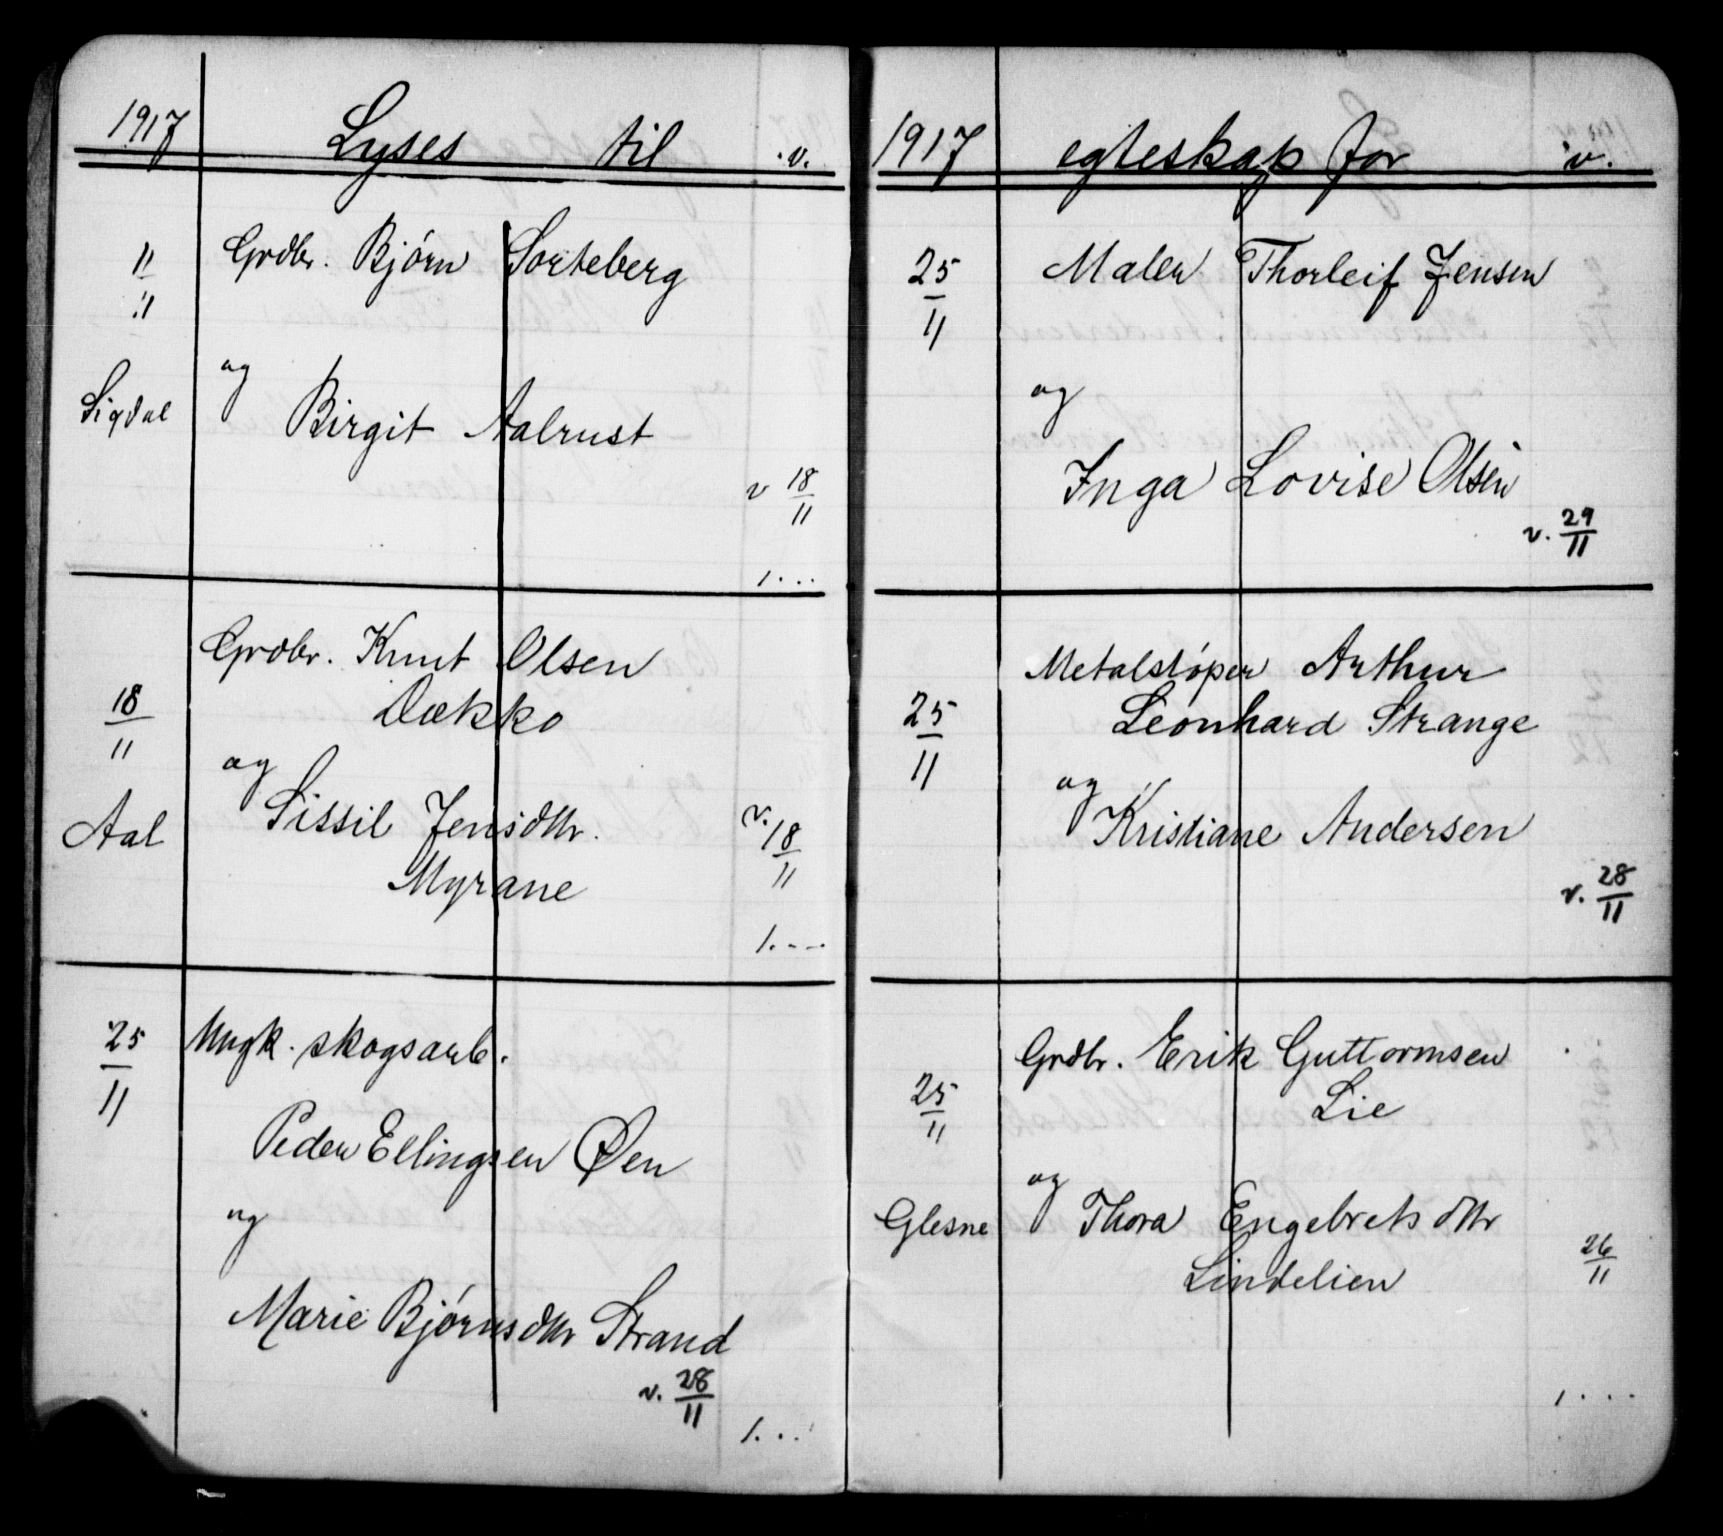 1917 Lyses til v.
11/11 Grdbr. Bjørn Sorteberg
og
Sigdal Birgit Aalrust
v 18/11
1...
Grdbr. Knut Olsen
18/11 Dækko
og
Aal Sissil Jensdtr. v. 18/11
Myrane
1.--
25/11 Ungk. skogsarb.
Peder Ellingsen Øen
og
Marie Bjørnsdtr Strand
v. 28/11
1...
1917 egteskap for v.
25/11 Maler Thorleif Jensen
og
Inga Lovise Olsen
v. 29/11
Metalstøper Arthur
25/11 Leonhard Strange
og
Kristiane Andersen
v. 28/11
Grdbr. Erik Guttormsen
25/11 Lie
og
Glesne Thora Engebretsdtr
Lindelien 26/11
1...